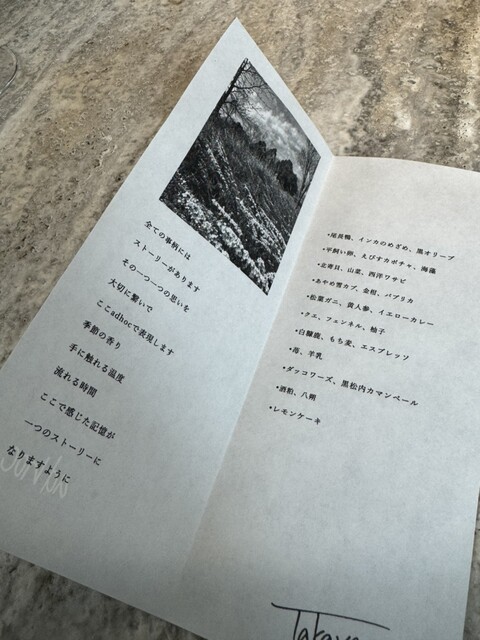 全ての事柄には
ストーリーがあります
その一つ一つの思いを
大切に繋いで
ここadhocで表現します
季節の香り
手に触れる温度
流れる時間
ここで感じた記憶が
一つのストーリーに
なりますように
•尾長鴨、インカのめざめ、黒オリーブ
•平飼い卵、えびすカボチャ、海藻
•北寄貝、山菜、西洋ワサビ
•あやめ雪カブ、金柑、パプリカ
•松葉ガニ、黄人参、イエローカレー
•クエ、フェンネル、柚子
•白糠鹿、もち麦、エスプレッソ
•苺、羊乳
•ダッコワーズ、黒松内カマンベール
•酒粕、八朔
•レモンケーキ